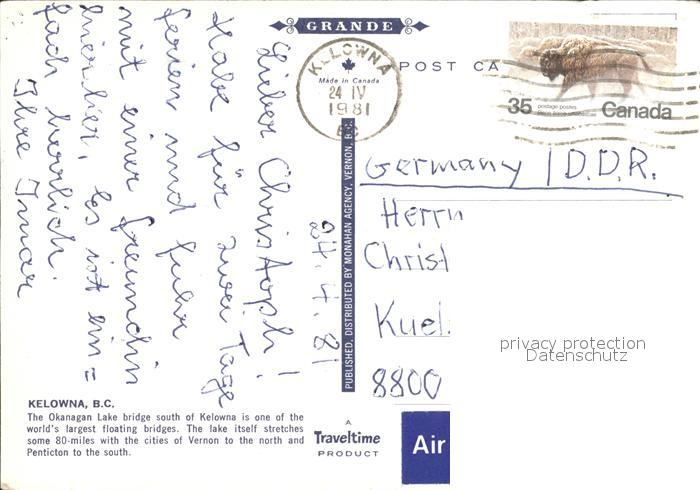 GRANDE
POST CA
Made in Canada
KELOWNA
24 IV
1981
B.C.
35 postage postes
Canada
24.4.81
Lieber Christoph!
Habe für zwei Tage
ferien und fuhr
mit einer freundin
hierher. Es ist ein=
fach herrlich.
Ihre
PUBLISHED, DISTRIBUTED BY MONAHAN AGENCY, VERNON, B.
Germany / D.D.R.
Herrn
Christ
Kuel
8800
privacy protection
Datenschutz
KELOWNA, B.C.
The Okanagan Lake bridge south of Kelowna is one of the
world's largest floating bridges. The lake itself stretches
some 80-miles with the cities of Vernon to the north and
Penticton to the south.
A
Traveltime
PRODUCT
Air